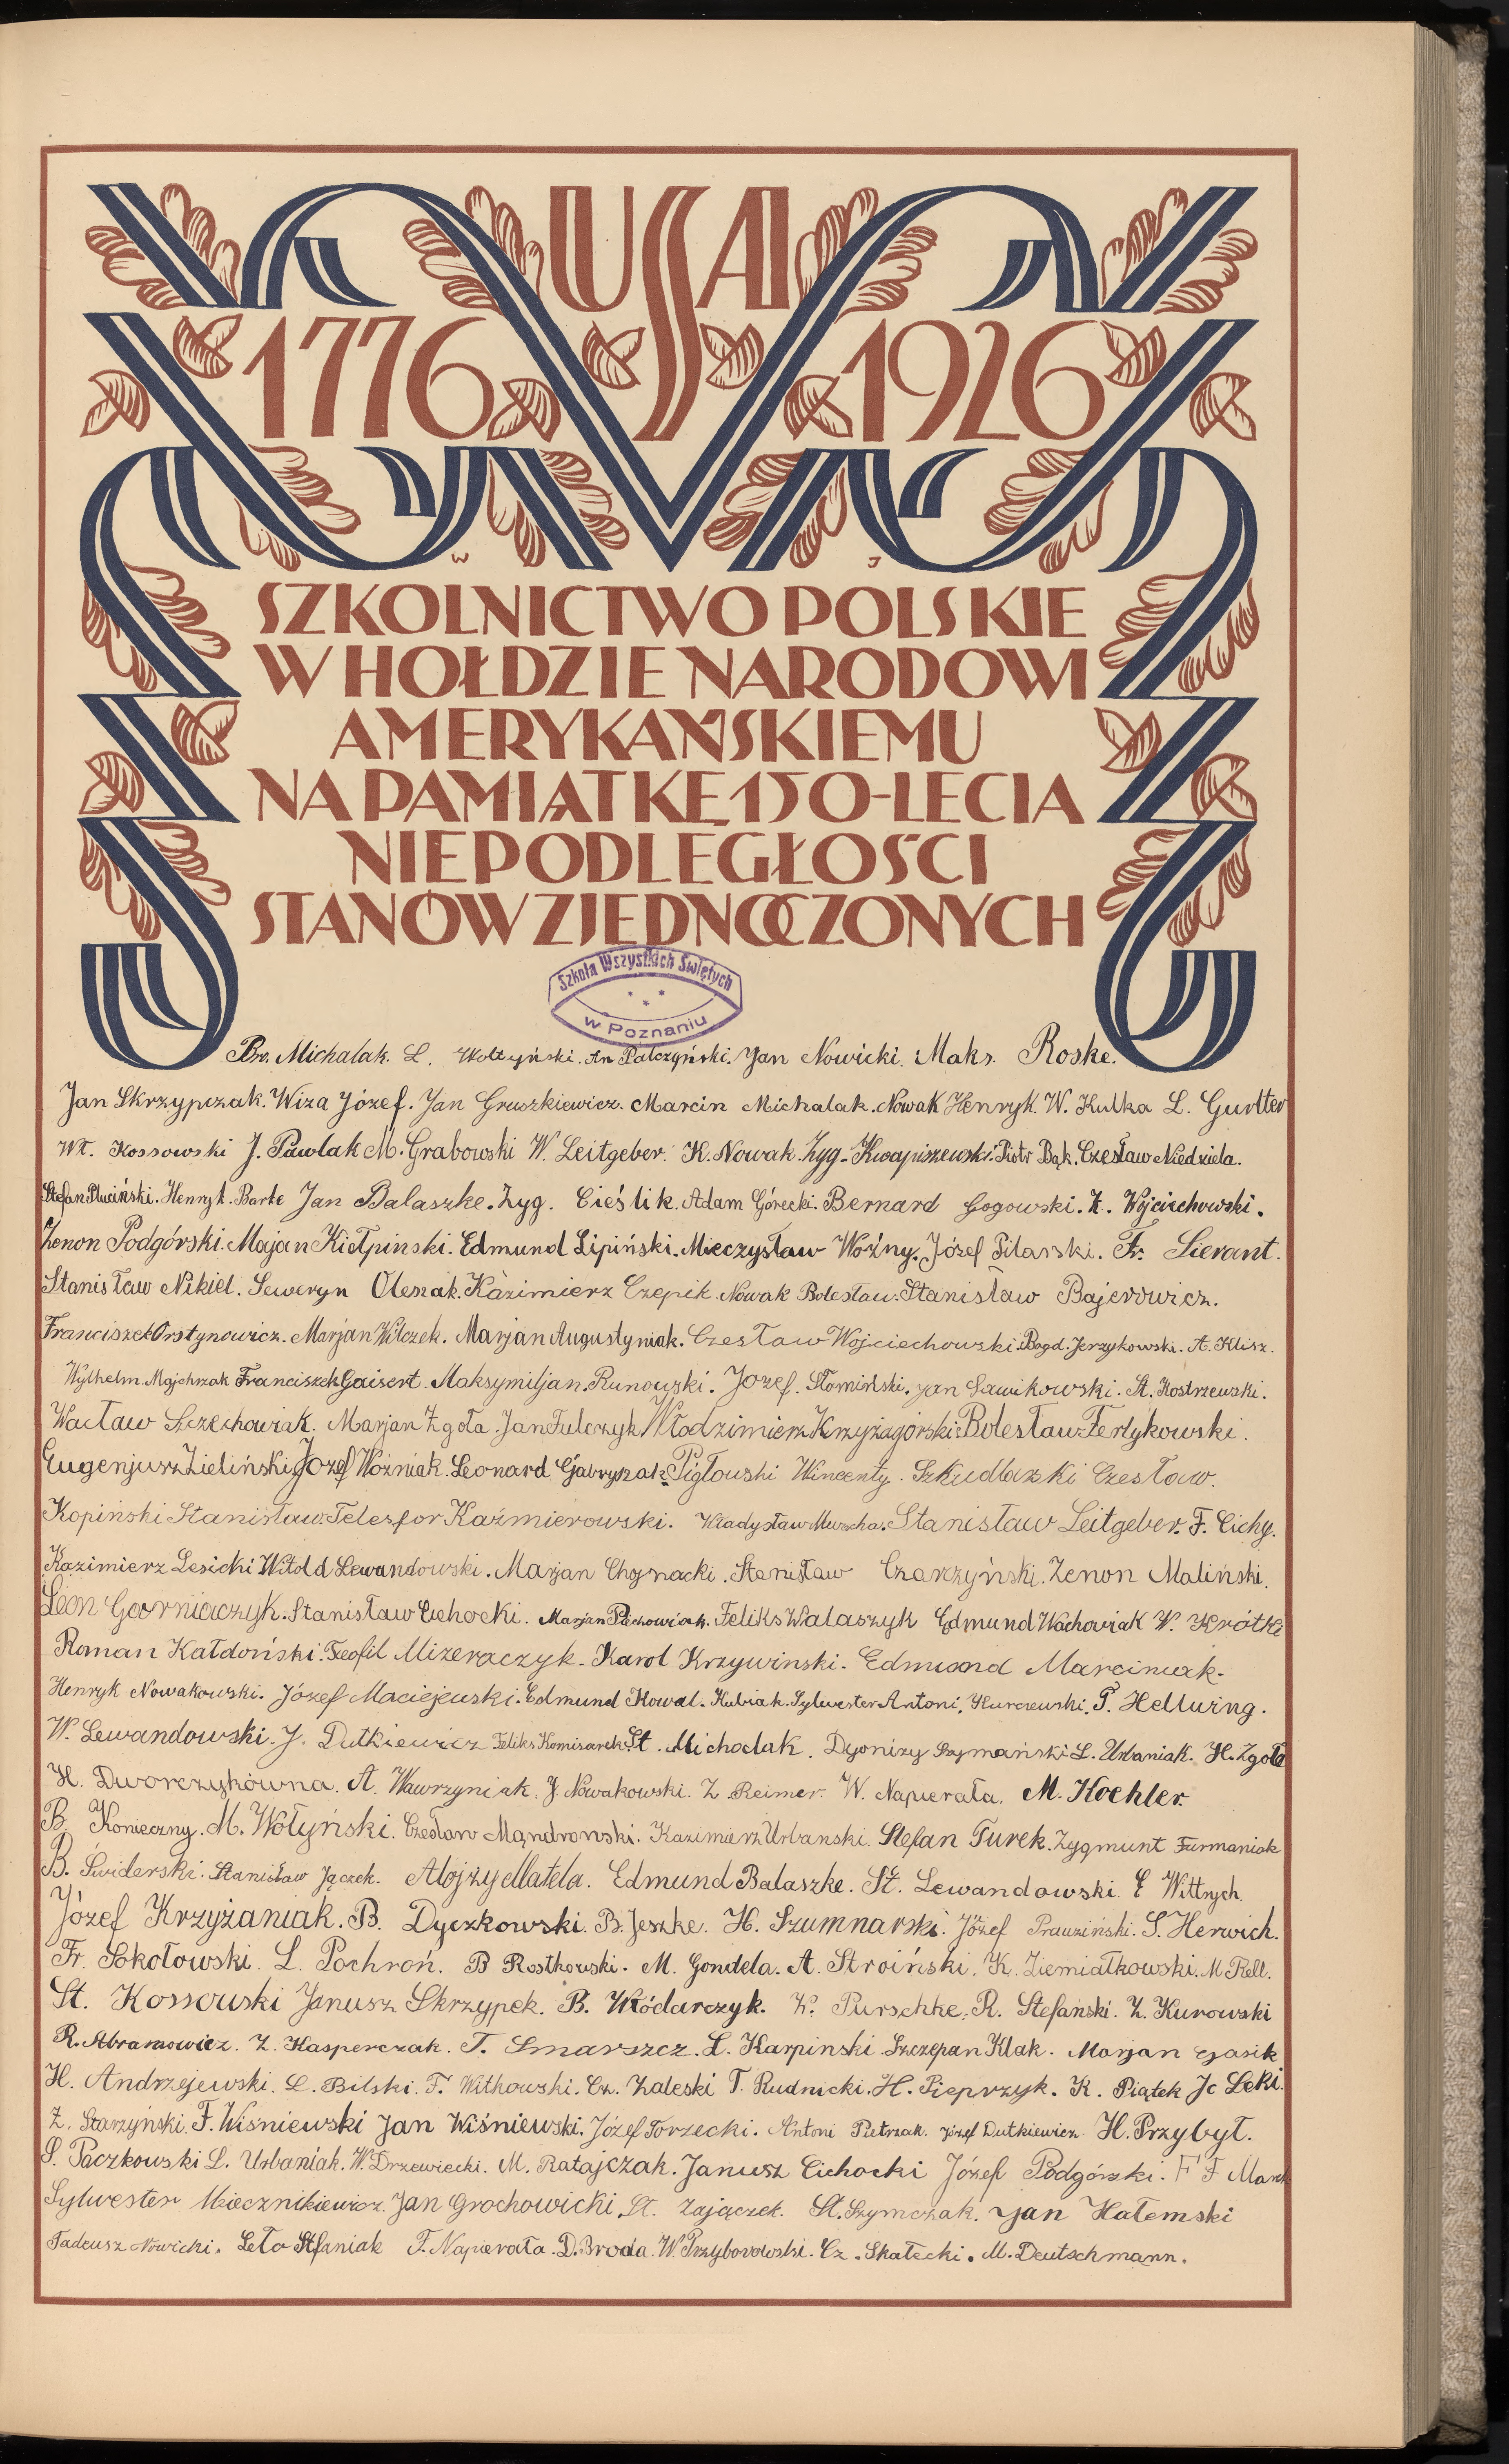 USA
1776 1926
W J
SZKOLNICTWO POLSKIE
W HOŁDZIE NARODOWI
AMERYKAŃSKIEMU
NA PAMIĄTKĘ 150-LECIA
NIEPODLEGŁOŚCI
STANÓW ZJEDNOCZONYCH
Szkoła Wszystkich Świętych
w Poznaniu
Br. Michalak. L. Wołtyński. An Palczyński. Jan Nowicki. Maks. Roske.
Jan Skrzypczak. Wiza Józef. Jan Gruszkiewicz. Marcin Michalak. Nowak Henryk. W. Kulka L. Gurtler
Wł. Kossowski J. Pawlak M. Grabowski W. Leitgeber. K. Nowak. Zyg. Kwapiszewski. Piotr Bąk. Czesław Niedziela.
Stefan Pluciński. Henryk. Barte Jan Balaszke. Zyg. Cieślik. Adam Górecki. Bernard Gogowski. K. Wojciechowski.
Zenon Podgórski. Majan Kiełpinski. Edmund Lipiński. Mieczysław Woźny. Józef Pilarski. Fr. Sierant.
Stanisław Nikiel. Seweryn Oleszak. Kazimierz Czepik. Nowak Bolesław. Stanisław Bajerowicz.
Franciszek Orstynowicz. Marjan Wilczek. Marjan Augustyniak. Czesław Wojciechowski. Bogd. Jerzykowski. A. Klisz.
Wylhelm. Majchrzak Franciszek Gaisert. Maksymiljan. Runowski. Jozef. Słomiński. Jan Sawikowski. St. Kostrzewski.
Wacław Szczechowiak. Marjan Zgoła. Jan Fulczyk Włodzimierz Krzyżagórski. Bolesław Ferlykowski.
Eugenjusz Zieliński. Józef Woźniak. Leonard Gabryszak. Pigłowski Wincenty. Szkudlarski Czesław.
Kopiński Stanisław. Telesfor Kaźmierowski. Władysław Mucha. Stanisław Leitgeber. F. Cichy.
Kazimierz Lesicki Witold Lewandowski. Marjan Chojnacki. Stanisław Czarczyński. Zenon Maliński.
Leon Goorniaczyk. Stanisław Cichocki. Marjan Piechowiak. Feliks Walaszyk Edmund Wachowiak W. Krótki
Roman Kałdoński. Teofil Mizeraczyk. Karol Krzywinski. Edmund Marciniak.
Henryk Nowakowski. Józef Maciejewski. Edmund Kowal. Kubiak. Sylwester Antoni. Kurczewski. T. Hellwing.
W. Lewandowski. J. Dutkiewicz Feliks Komisarek. St. Michalak. Dyonizy Szymański L. Urbaniak. H. Zgoła
H. Dworczykówna. A. Wawrzyniak. J. Nowakowski. Z. Reimer. W. Napierała. M. Koehler.
B. Konieczny. M. Wołyński. Czesław Mądrowski. Kazimierz Urbanski. Stefan Turek. Zygmunt Furmaniak
B. Świderski. Stanisław Jączek. Alojzy Matela. Edmund Balaszke. St. Lewandowski. E Wittrych.
Józef Krzyżaniak. B. Dyczkowski. B. Jeszke. H. Szumnarski. Józef Prauziński. S. Herwich.
Fr. Sokołowski. L. Pochroń. B Rostkowski. M. Gondela. A. Stroiński. K. Ziemiałkowski. M Rell.
St. Kossowski Janusz Skrzypek. B. Włódarczyk. W. Purschke. R. Stefański. Z. Kurowski
R. Abramowicz. Z. Kasperczak. T. Smarszcz. L. Karpinski. Szczepan Klak. Marjan Gasik
H. Andrzejewski. L. Bilski. F. Witkowski. Cz. Zaleski T. Rudnicki. H. Pieprzyk. K. Piątek Jc Leki.
Z. Starzyński. F. Wiśniewski Jan Wiśniewski. Józef Torzecki. Antoni Pietrzak. Józef Dutkiewicz. H. Przybył.
S. Paczkowski L. Urbaniak. W. Drzewiecki. M. Ratajczak. Janusz Cichocki Józef Podgórski. F F Mank
Sylwester Miecznikiewicz. Jan Grochowicki. St. Zajączek. St. Szymczak. Jan Hałemski
Tadeusz Nowicki. Leto Stefaniak F. Napierała. D. Broda. W. Przyborowski. Cz. Skałecki. M. Deutschmann.